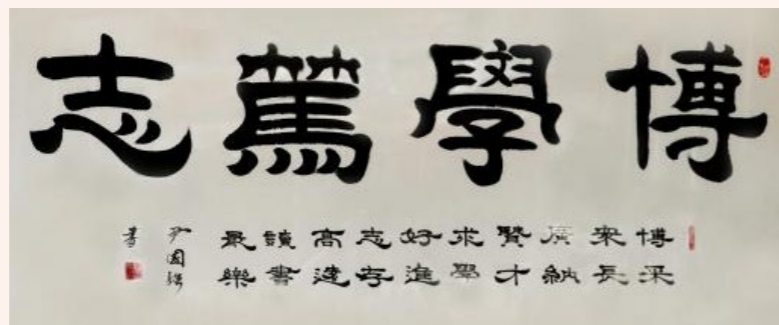 博學篤志
博采
眾長
廣納
賢才
求學
好進
志存
高遠
讀書
最樂
尹國
書